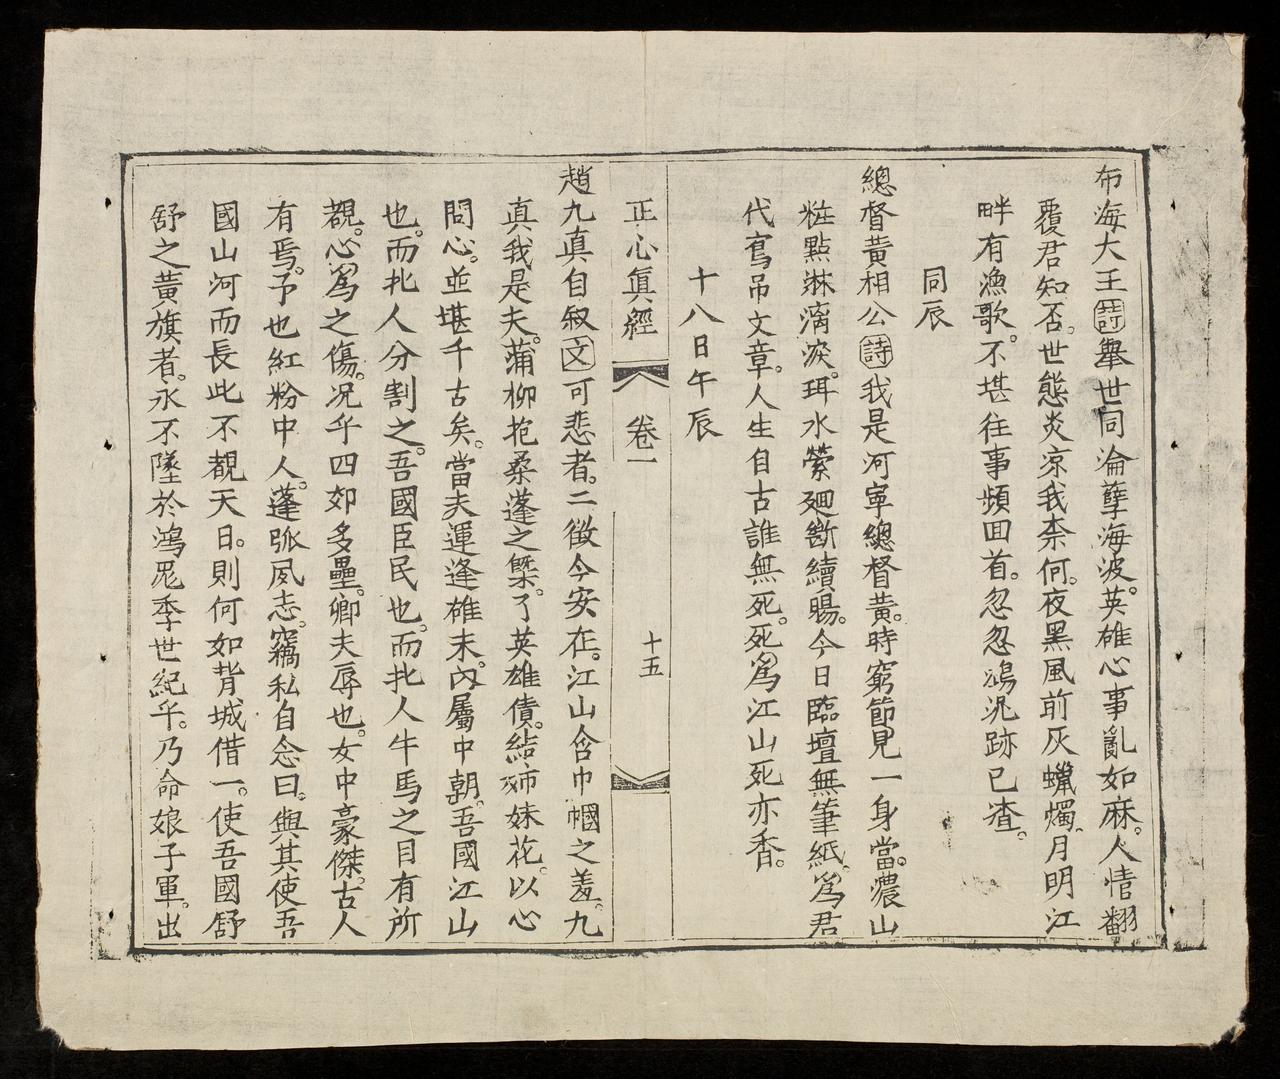 布海大王詩舉世同淪孽海波。英雄心事亂如麻。人情翻
覆君知否。世態炎凉我柰何。夜黑風前灰蠟燭。月明江
畔有漁歌。不堪往事頻回首。忽忽鴻泥跡已渣。
同辰
總督黃相公詩我是河寧總督黃。時窮節見一身當。濃山
粧點淋漓淚。珥水縈廻斷續腸。今日臨壇無筆紙。爲君
代寫吊文章。人生自古誰無死。死爲江山死亦香。
十八日午辰
正心眞經 卷一 十五
趙九真自叙文可悲者。二徵今安在。江山含巾幗之羞。九
真我是夫。蒲柳抱桑蓬之槩。了英雄債。結姊妹花。以心
問心。並堪千古矣。當夫運逢雄末。內屬中朝。吾國江山
也。而北人分割之。吾國臣民也。而北人牛馬之目有所
覩。心爲之傷。况乎四郊多壘。卿夫辱也。女中豪傑。古人
有焉。予也紅粉中人。蓬弧夙志。竊私自念曰。與其使吾
國山河而長此不覩天日。則何如背城借一。使吾國舒
舒之黃旗者。永不墜於鴻厖季世紀乎。乃命娘子軍。出